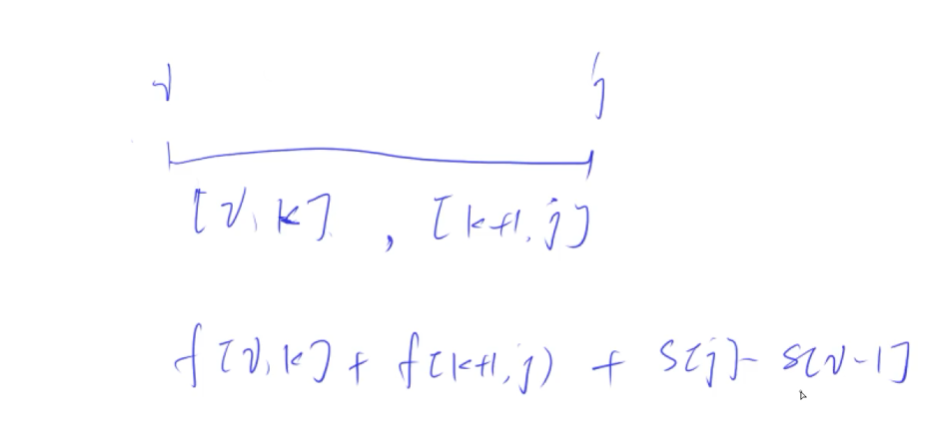 i j
[i, k] , [k+1, j]
f[i, k] + f[k+1, j) + s[j] - s[i-1]